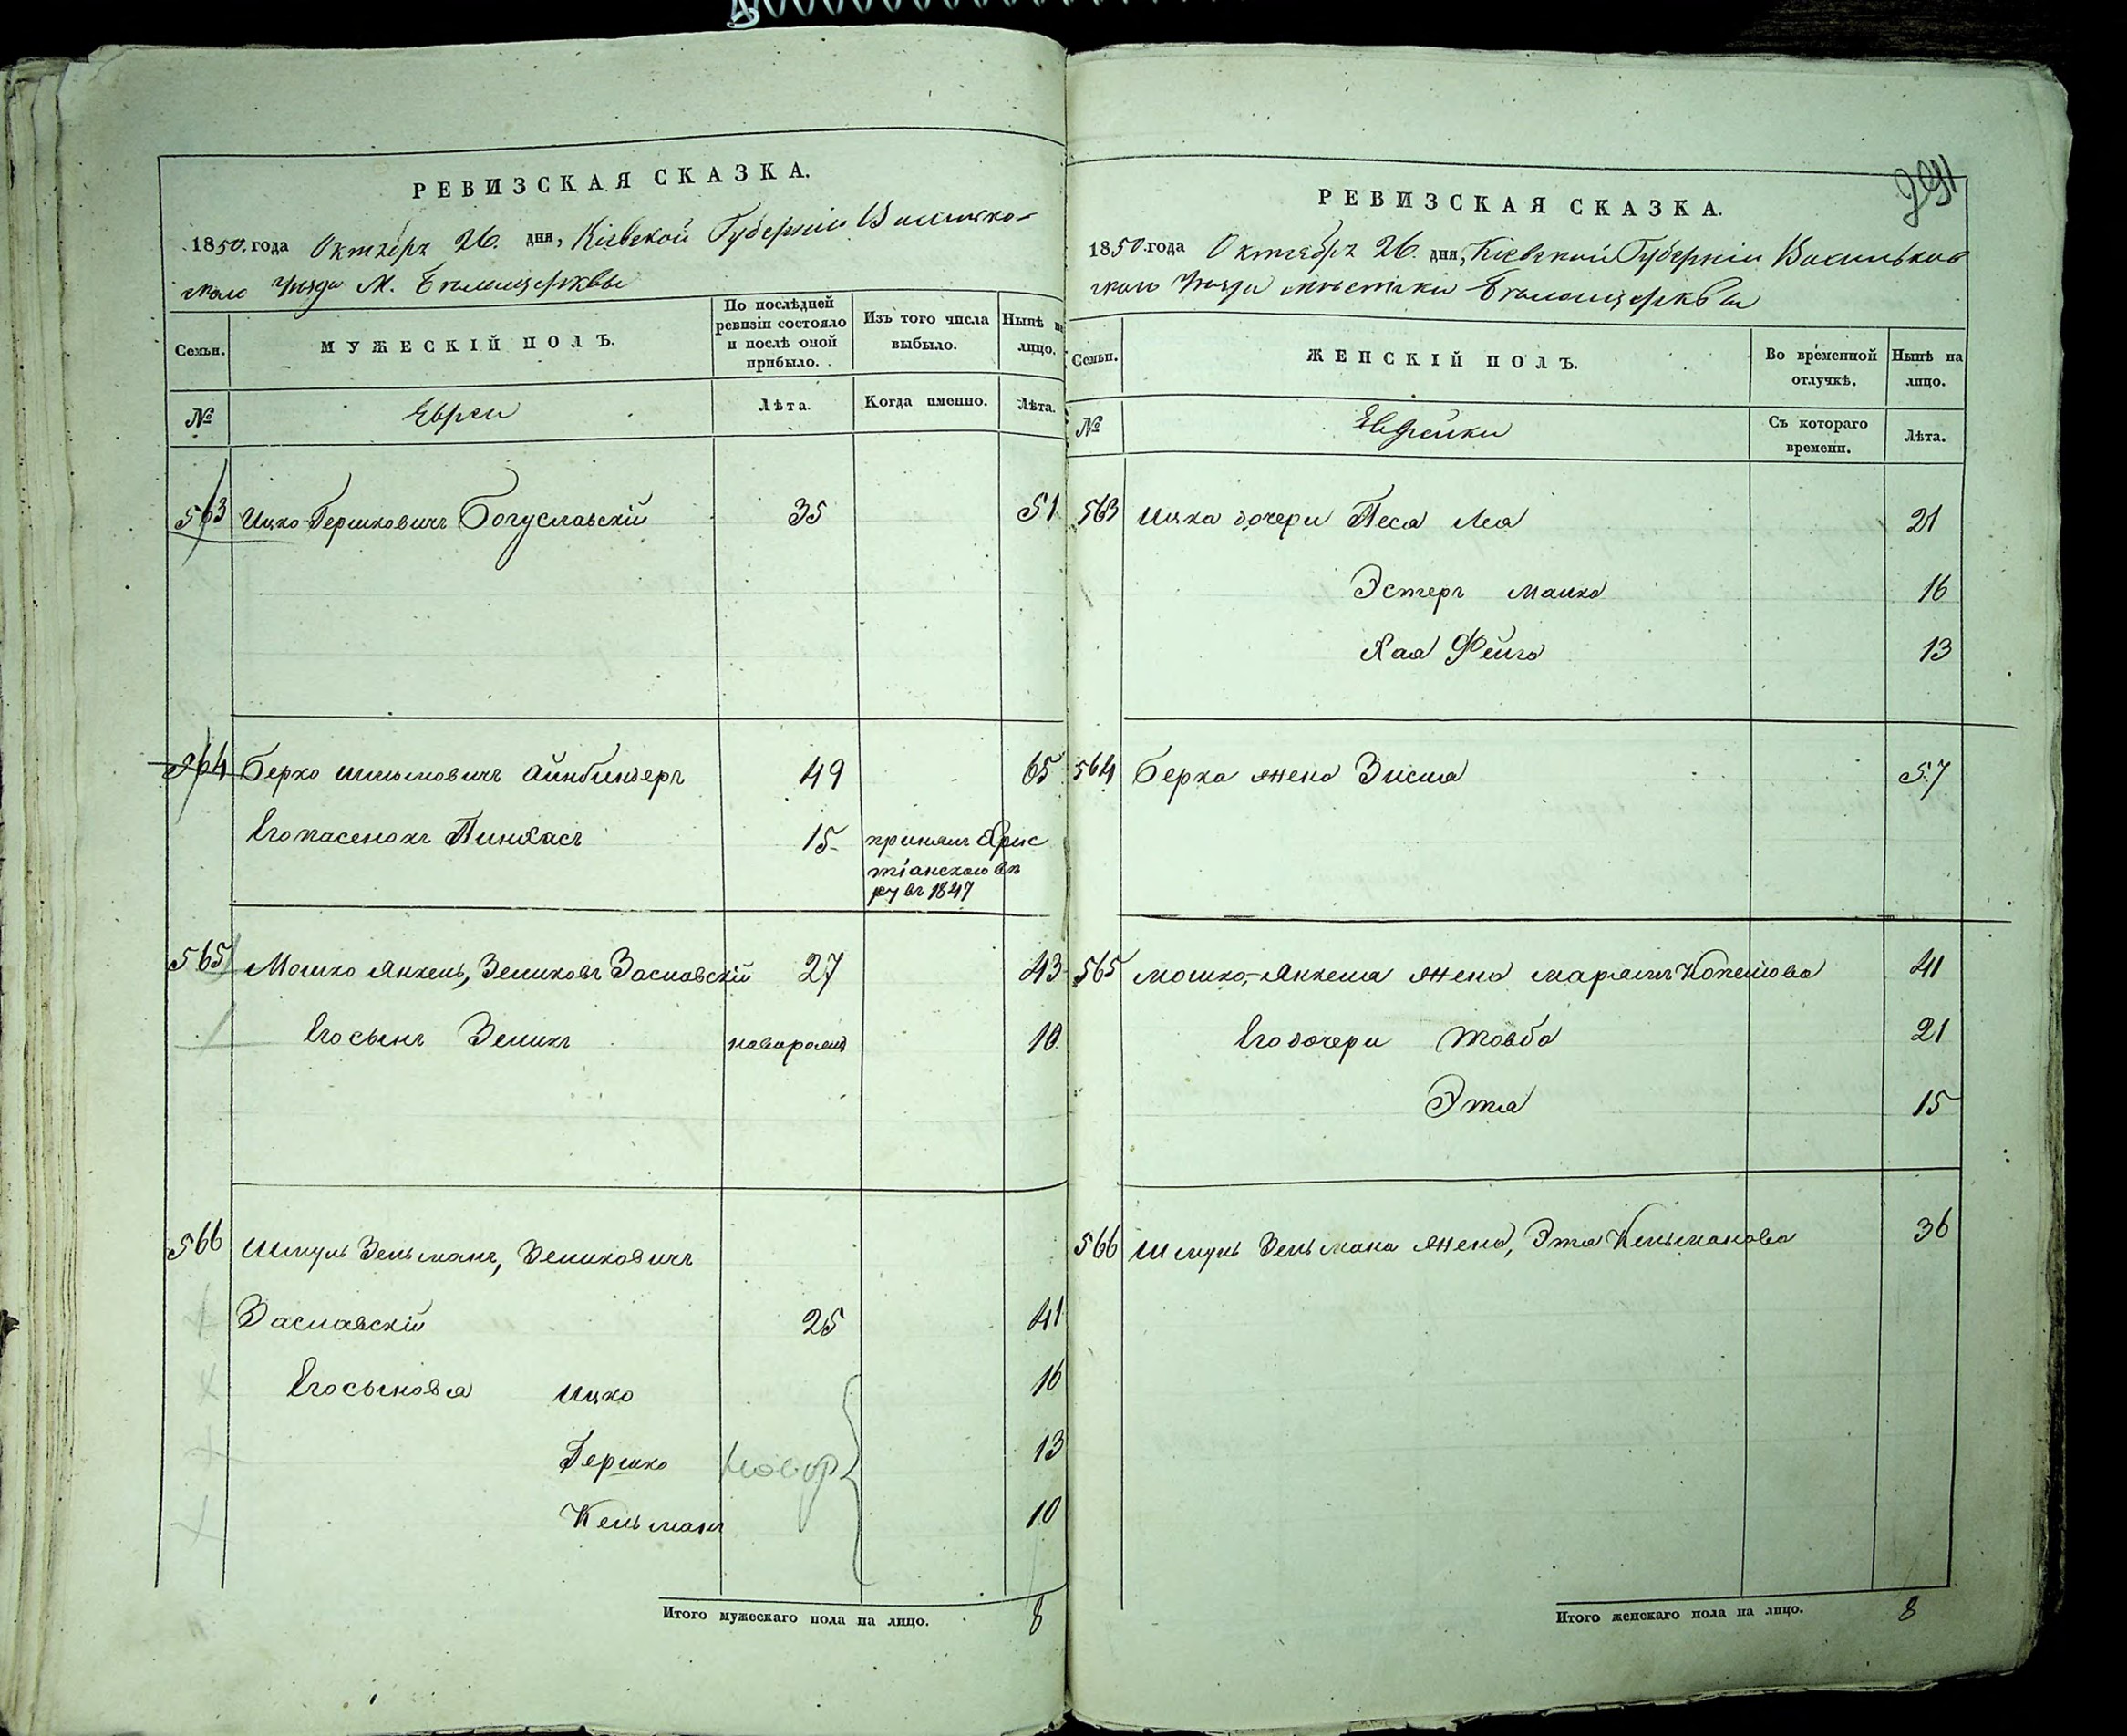 РЕВИЗСКАЯ СКАЗКА.
1850. года Октября 26. дня, Кіевской Губерніи Василько-
скаго Уезда М. Белойцерквы
Семьи.
МУЖЕСКІЙ ПОЛЪ.
По послѣдней ревизіи состояло и послѣ оной прибыло.
Изъ того числа выбыло.
Нынѣ на лицо.
№
Евреи
Лѣта.
Когда именно.
Лѣта.
563 Ицко Гершковичъ Богуславскій 35 51
564 Берко Шлiомовичъ Айнбиндеръ 49 65
Его пасенокъ Пинхасъ 15 принялъ Хрис
тіанскою вѣ
ру въ 1847
565 Мошко Янкель, Зеликовъ Заславскій 27 43
Его сынъ Зеликъ новорожд 10
566 Шмуль Зельманъ, Зеликовичъ
Заславскій 25 41
Его сыновья Ицко 16
Гершко новор 13
Кельманъ 10
Итого мужескаго пола на лицо. 8
291
РЕВИЗСКАЯ СКАЗКА.
1850. года Октября 26. дня, Кіевской Губерніи Васильков
скаго Уезда местечки Белойцерквы
Семьи.
ЖЕНСКІЙ ПОЛЪ.
Во временной отлучкѣ.
Нынѣ на лицо.
№
Еврейки
Съ котораго времени.
Лѣта.
563 Ицка дочери Песя Лея 21
Эстеръ Малка 16
Хая Фейга 13
564 Берка жена Зисля 57
565 Мошко-Янкеля жена Марьямъ 41
Его дочери Товба 21
Этя 15
566 Шмуль Зельмана жена, Этя Кельманова 36
Итого женскаго пола на лицо. 8